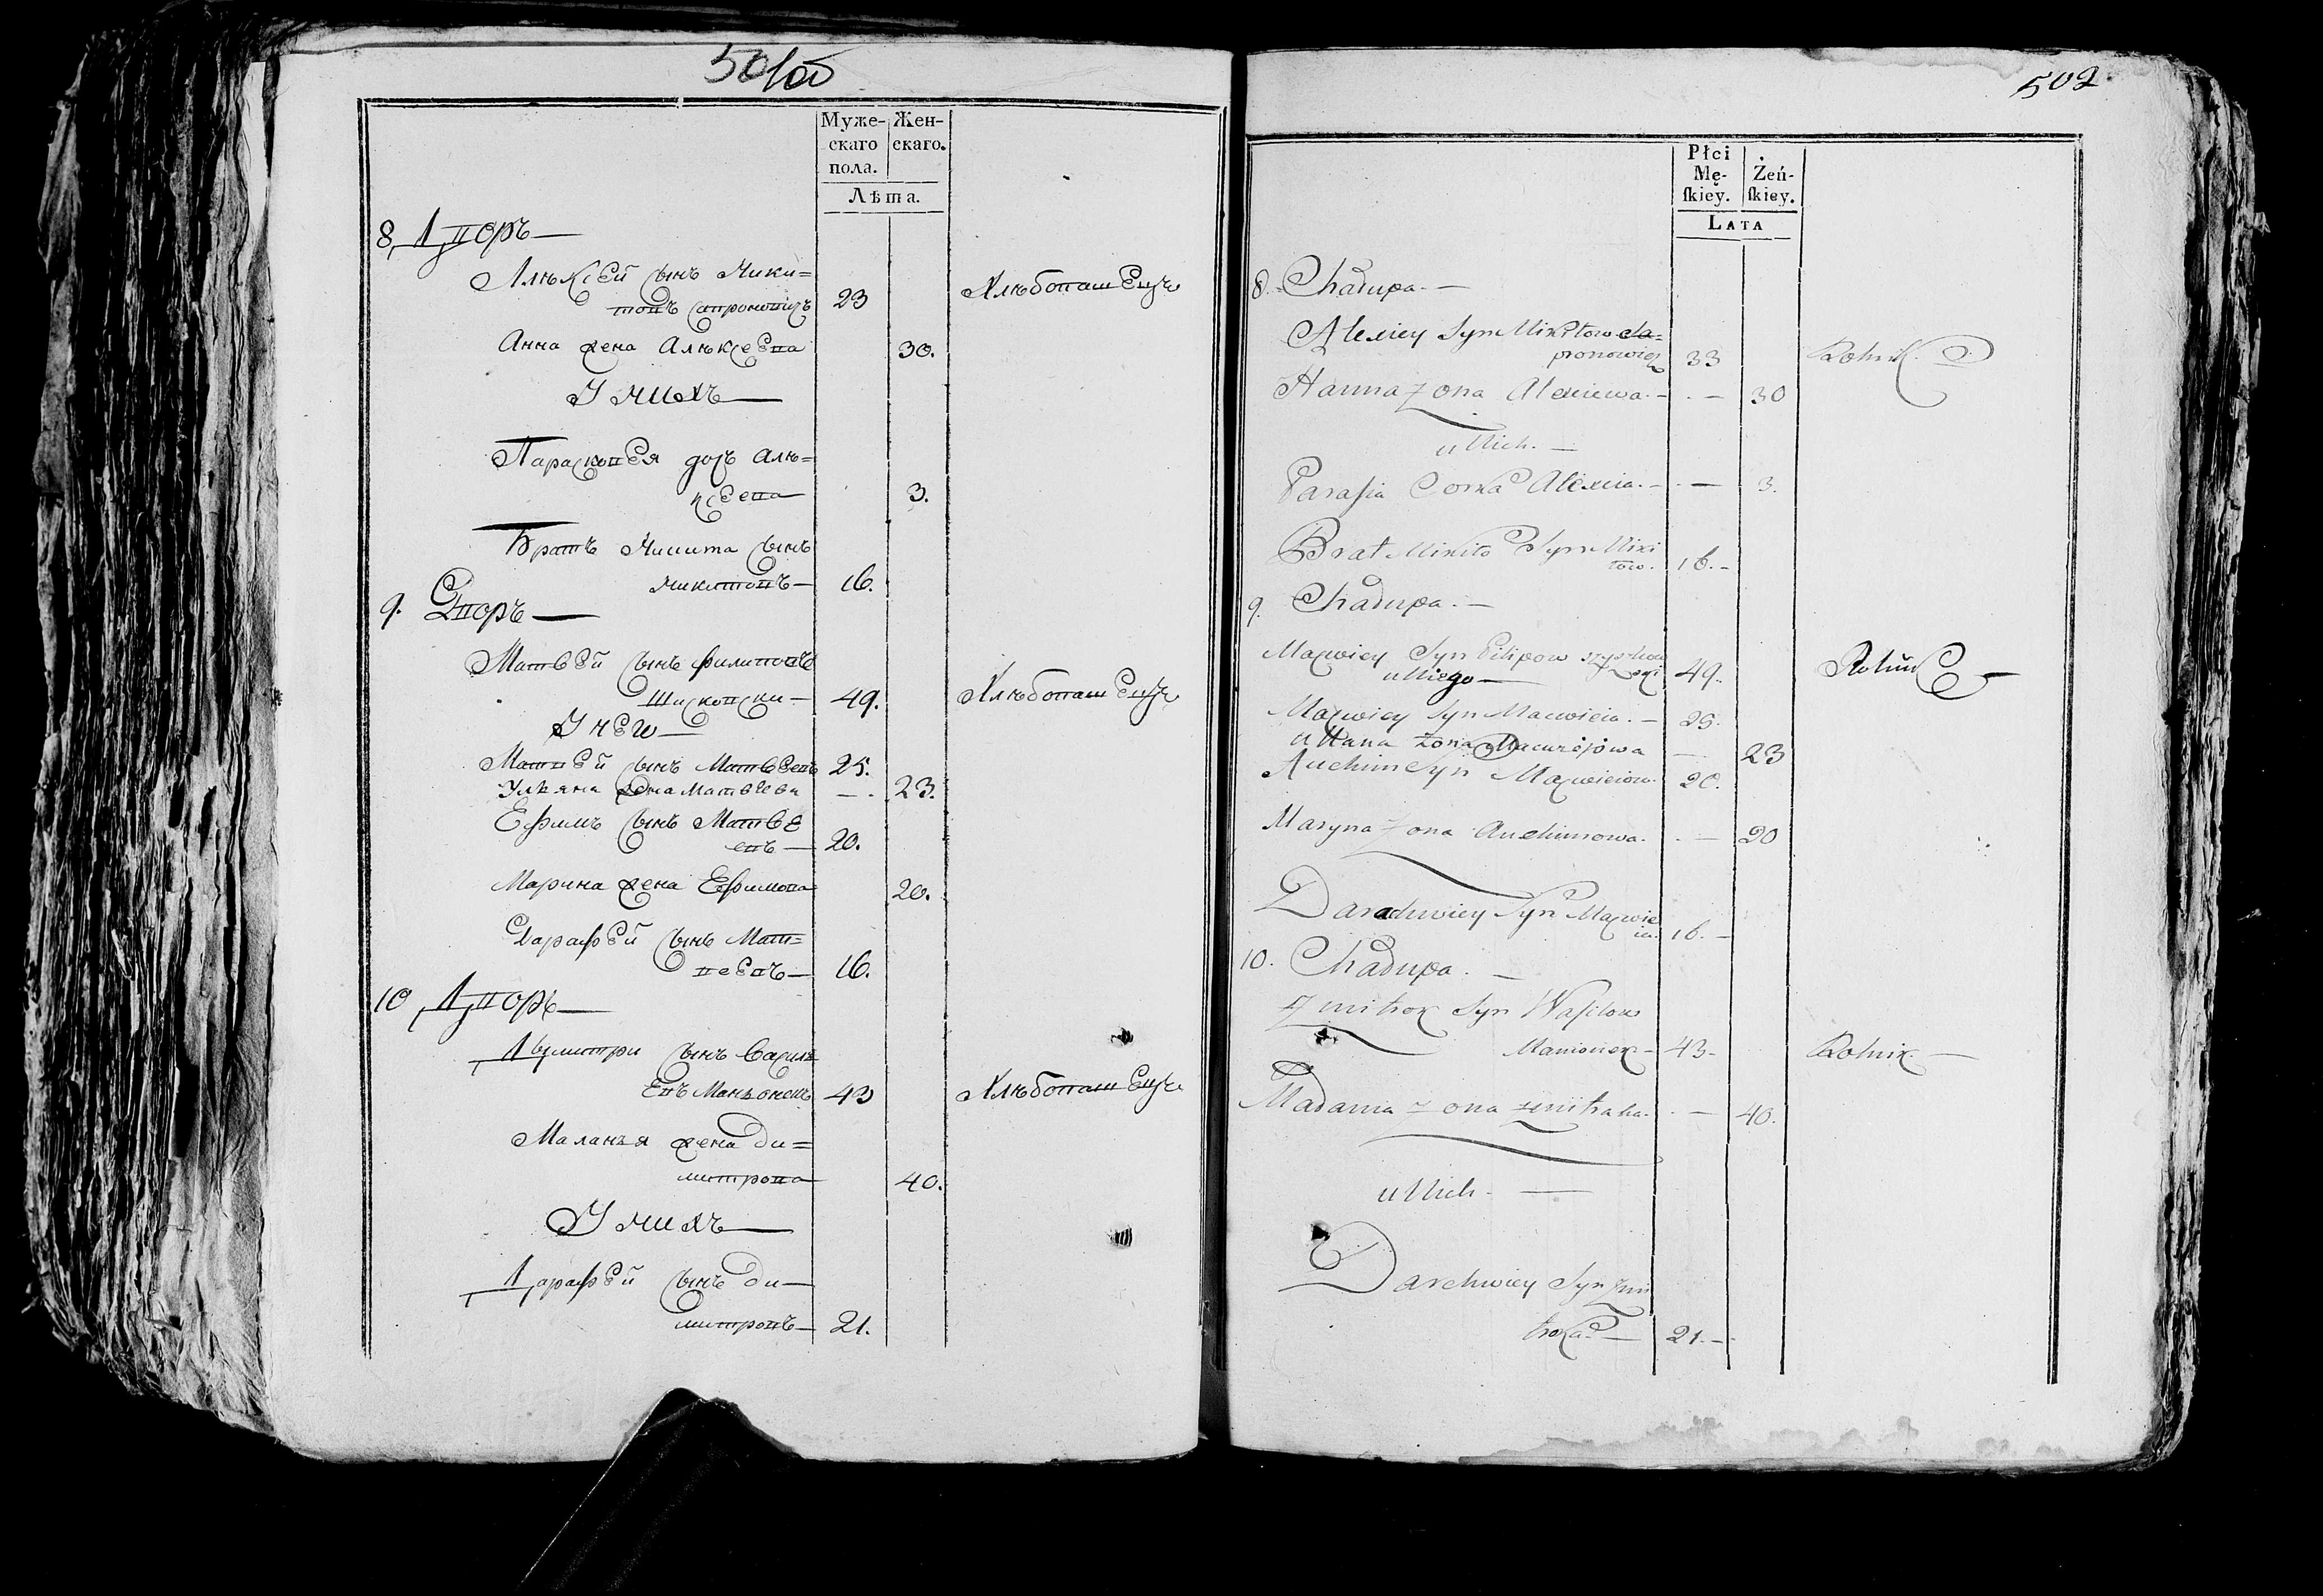 501об
Муже-
скаго
пола.
Жен-
скаго.
Лѣта.
8, Дворъ —
Алѣксей сынъ Мики=
товъ Сапроновичъ 23 Хлѣбопашецъ
Анна жена Алѣксеева 30.
У нихъ —
Парасковея дочъ Алѣ=
ксеева 3.
Братъ Микита сынъ
Микитовъ — 16.
9. Дворъ —
Матвей сынъ Филиповъ
Шисковски — 49. Хлѣбопашецъ
У него —
Матвей сынъ Матвеевъ 25.
Ульяна жена Матвеева — . 23.
Ефимъ сынъ Матве
евъ — 20.
Марина жена Ефимова 20.
Дарафей сынъ Мат=
веевъ — 16.
10 Дворъ —
Дмитри сынъ Васил
евъ Маньонокъ 43 Хлѣбопашецъ
Маланья жена Ди=
митрова 40.
У нихъ —
Дарафей сынъ Ди —
митровъ — 21.
502
Płci
Mę-
skiey.
Żeń-
skiey.
LATA
8. Chałupa. —
Alexiey Syn Mikitow Sa=
pronowicz 33 Rolnik
Hanna Zona Alexiewa. - . — 30
u Nich. —
Parasia Corka Alexia. - . — 3.
Brat Mikito Syn Miki
tow. 16. -
9. Chałupa. —
Macwiey Syn Pilipow Szyszkow
u Niego — ski 49. Rolnik —
Macwiey Syn Macwieia. — 25.
Ullana Żona Macwiejowa — 23
Auchim Syn Macwieiow. 20.
Maryna Zona Auchimowa. . — 20
Darachwiey Syn Macwie
ia. 16. -
10. Chałupa. —
Zmitrok Syn Wasilow
Manionek - 43 - Rolnik. —
Madania Zona Zmitraka. . — 40.
u Nich. —
Darchwiey Syn Zmi
troka. — 21. -